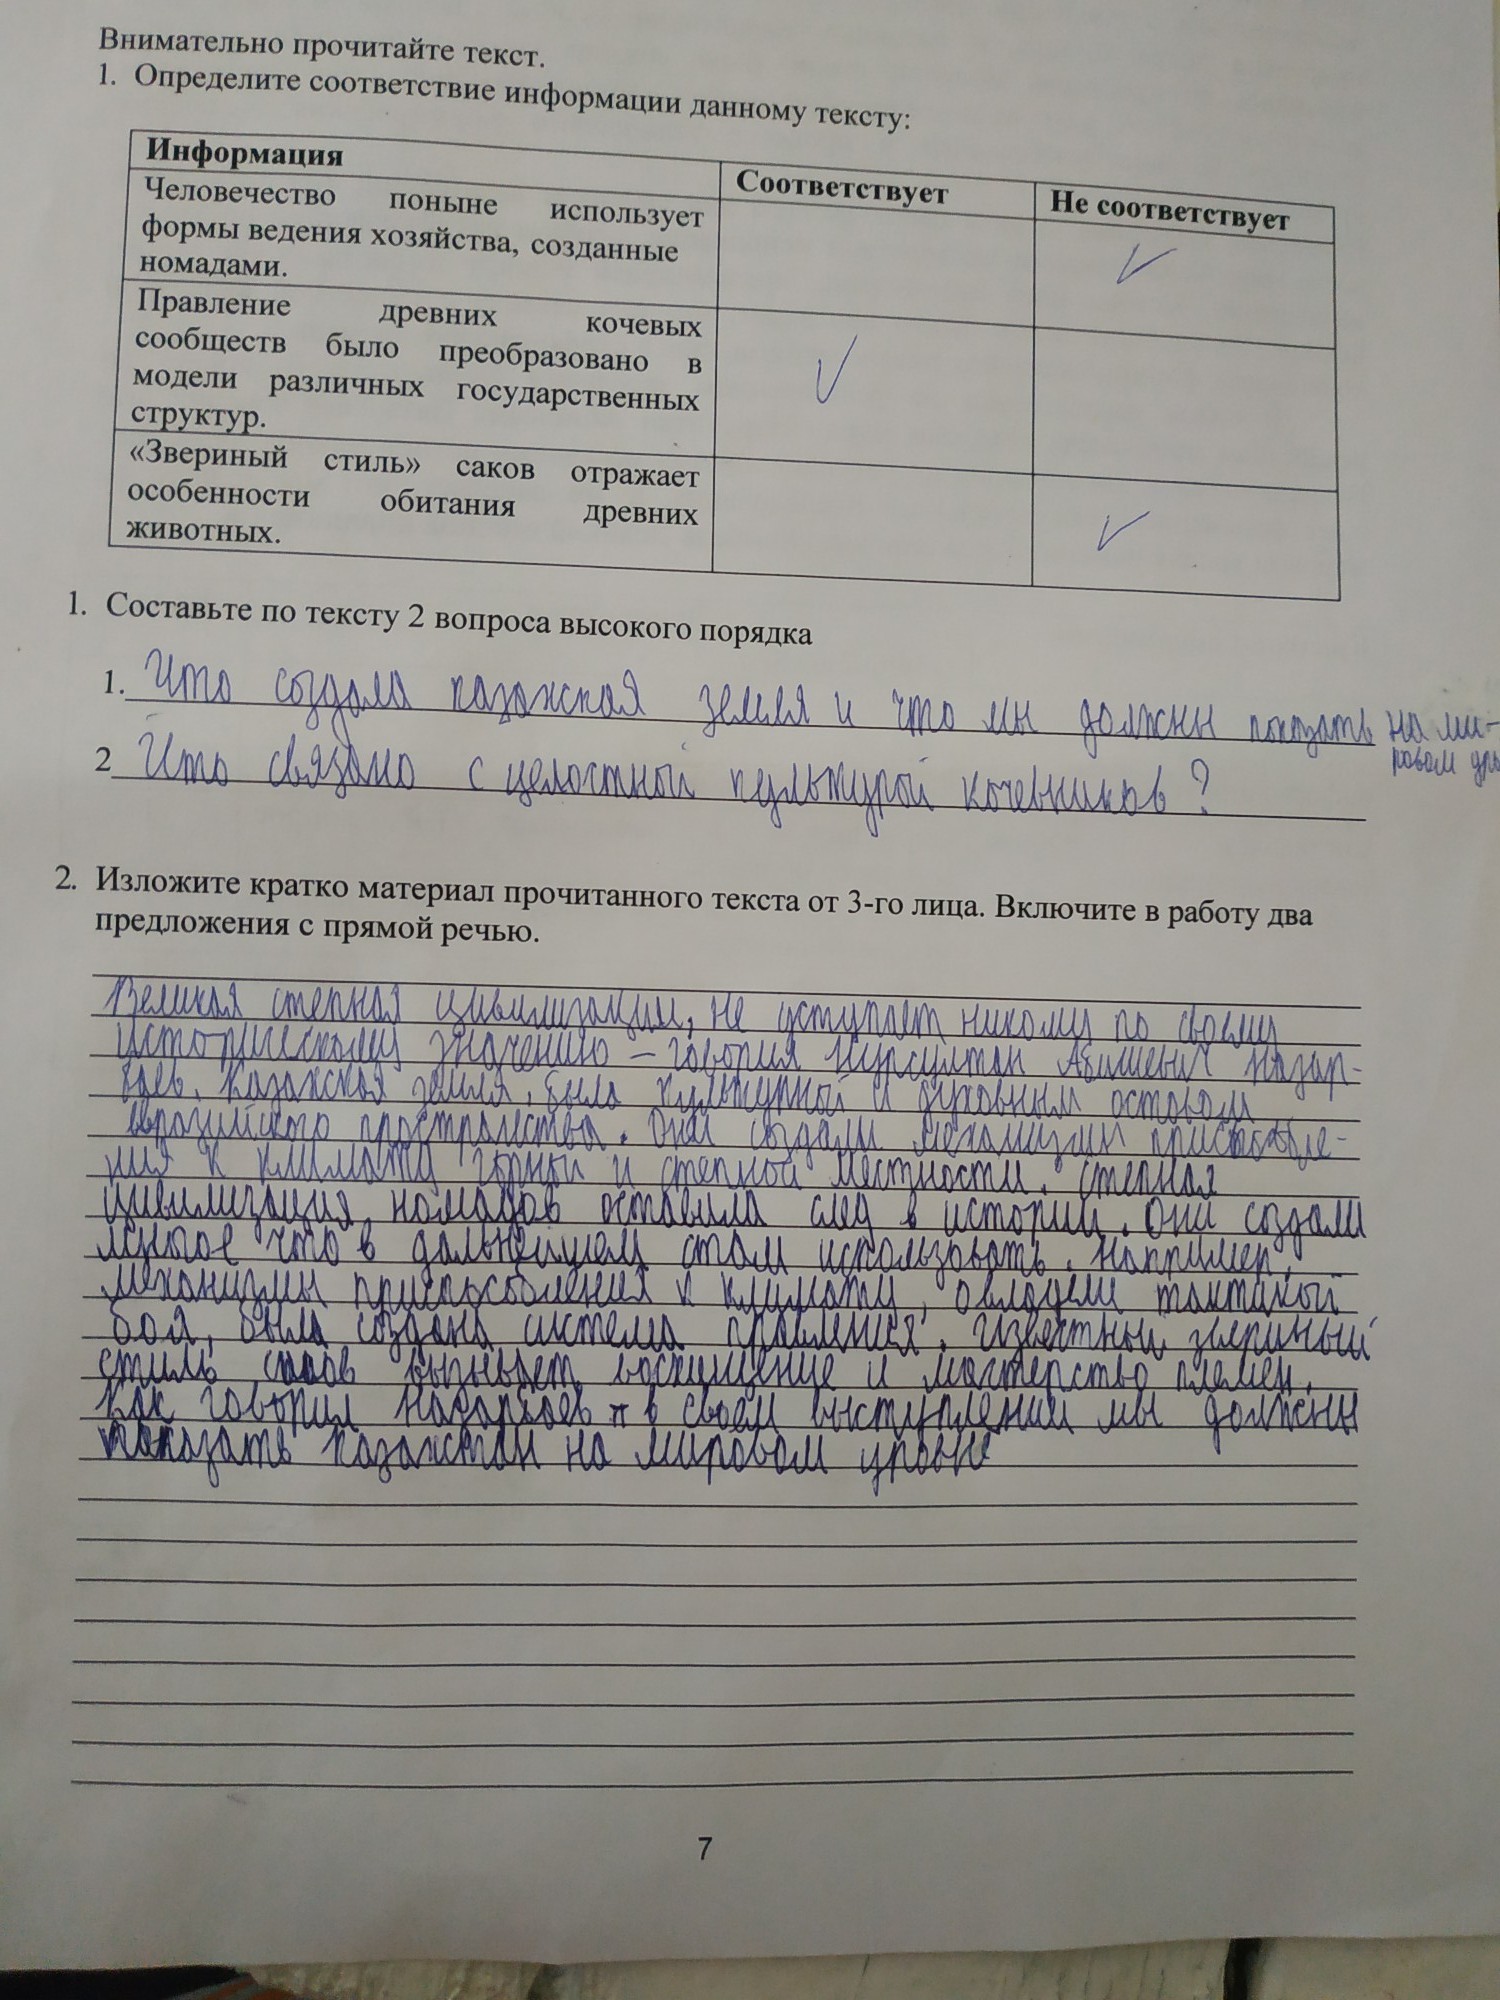 Внимательно прочитайте текст.
1. Определите соответствие информации данному тексту:
Информация
Соответствует
Не соответствует
Человечество поныне использует
формы ведения хозяйства, созданные
номадами.
Правление древних кочевых
сообществ было преобразовано в
модели различных государственных
структур.
«Звериный стиль» саков отражает
особенности обитания древних
животных.
1. Составьте по тексту 2 вопроса высокого порядка
1. Что создала казахская земля и что мы должны показать на ми-
ровом уро
2 Что связано с целостной культурой кочевников?
2. Изложите кратко материал прочитанного текста от 3-го лица. Включите в работу два
предложения с прямой речью.
Великая степная цивилизации, не уступает никому по своему
историческому значению – говорил Нурсултан Абишевич Назар-
баев. Казахская земля, была культурной и духовным остовом
евразийского пространства. Они создали механизмы приспособле-
ния к климату горной и степной местности. Степная
цивилизация номадов оставила след в истории. Они создали
многое что в дальнейшем стали использовать. Например,
механизмы приспособления к климату, овладели тактикой
боя, была создана система правления. Известный звериный
стиль саков вызывает восхищение и мастерство племен.
Как говорил Назарбаев в своем выступлении мы должны
показать Казахстан на мировом уровне
7